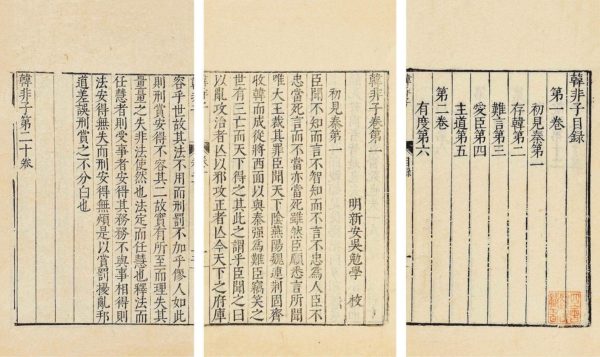 韓非子目錄
第一卷
初見秦第一
存韓第二
難言第三
愛臣第四
主道第五
第二卷
有度第六
目錄
韓非子卷第一
明新安吳勉學 校
初見秦第一
臣聞不知而言不智知而不言不忠為人臣不
忠當死言而不當亦當死雖然臣願悉言所聞
唯大王裁其罪臣聞天下陰燕陽魏連荆固齊
收韓而成從將西面以與秦強為難臣竊笑之
世有三亡而天下得之其此之謂乎臣聞之曰
以亂攻治者亾以邪攻正者亾今天下之府庫
容乎世故其法不用而刑罰不加乎僇人如此
則刑賞安得不容其二故實有所至而理失其
量量之失非法使然也法定而任慧也釋法而
任慧者則受事者安得其務務不與事相得則
法安得無失而刑安得無煩是以賞罰擾亂邦
道差誤刑賞之不分白也
韓非子第二十卷